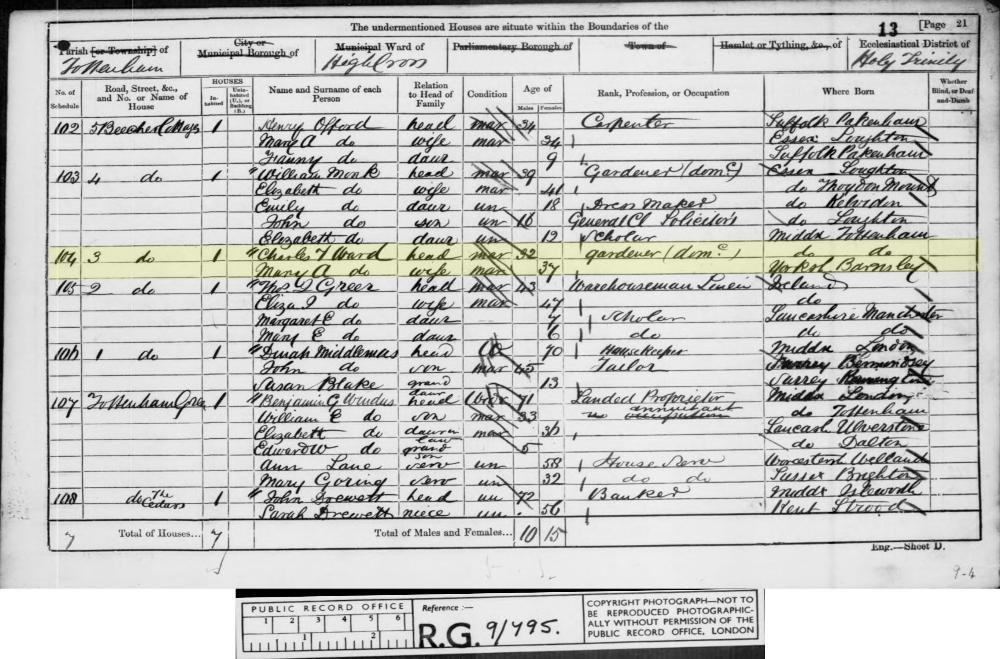 The undermentioned Houses are situate within the Boundaries of the
13 [Page 21
Parish [or Township] of City or Municipal Borough of Municipal Ward of Parliamentary Borough of Town of Hamlet or Tything, &c., of Ecclesiastical District of
Tottenham High Cross Holy Trinity
No. of Schedule Road, Street, &c., and No. or Name of House HOUSES Inhabited Uninhabited (U.), or Building (B.) Name and Surname of each Person Relation to Head of Family Condition Age of Males Females Rank, Profession, or Occupation Where Born Whether Blind, or Deaf-and-Dumb
102 5 Beeches Cottages 1 Henry Offord head mar 34 Carpenter Suffolk Pakenham
Mary A do wife mar 34 Essex Loughton
Fanny do daur 9 Suffolk Pakenham
103 4 do 1 William Monk head mar 39 Gardener (domc) Essex Loughton
Elizabeth do wife mar 41 do Theydon Mount
Emily do daur un 18 Dress Maker do Kelvedon
John do son un 16 General Cl Solicitors do Loughton
Elizabeth do daur un 12 Scholar Middx Tottenham
104 3 do 1 Charles T Ward head mar 32 gardener (domc.) do do
Mary A do wife mar 37 Yorksh Barnsley
105 2 do 1 Thos J Greer head mar 43 Warehouseman Linen Ireland
Eliza J do wife mar 47 do
Margaret E do daur 7 Scholar Lancashire Manchester
Mary E do daur 6 do do do
106 1 do 1 Dinah Middlemas head 70 Housekeeper Middx London
John do son mar 45 Tailor Surrey Bermondsey
Susan Blake grand daur 13 Surrey Kennington
107 Tottenham Green 1 Benjamin G Windus head Widr 71 Landed Proprietor Middx London
William E do son mar 33 annuitant do Tottenham
Elizabeth do daur in law mar 30 Lancash Ulverstone
Edward W do grand son 5 do Dalton
Ann Lane serv un 58 House Serv Worcestersh Welland
Mary Goring serv un 32 do do Sussex Brighton
108 do The Cedars 1 John Drewett head un 72 Banker Middx Isleworth
Sarah Drewett niece un 56 Kent Strood
7 Total of Houses... 7 Total of Males and Females... 10 15
Eng.—Sheet D.
9-4
PUBLIC RECORD OFFICE
1 2 3 4 5 6
1 2
Reference :—
R.G. 9/795.
COPYRIGHT PHOTOGRAPH—NOT TO
BE REPRODUCED PHOTOGRAPHIC-
ALLY WITHOUT PERMISSION OF THE
PUBLIC RECORD OFFICE, LONDON